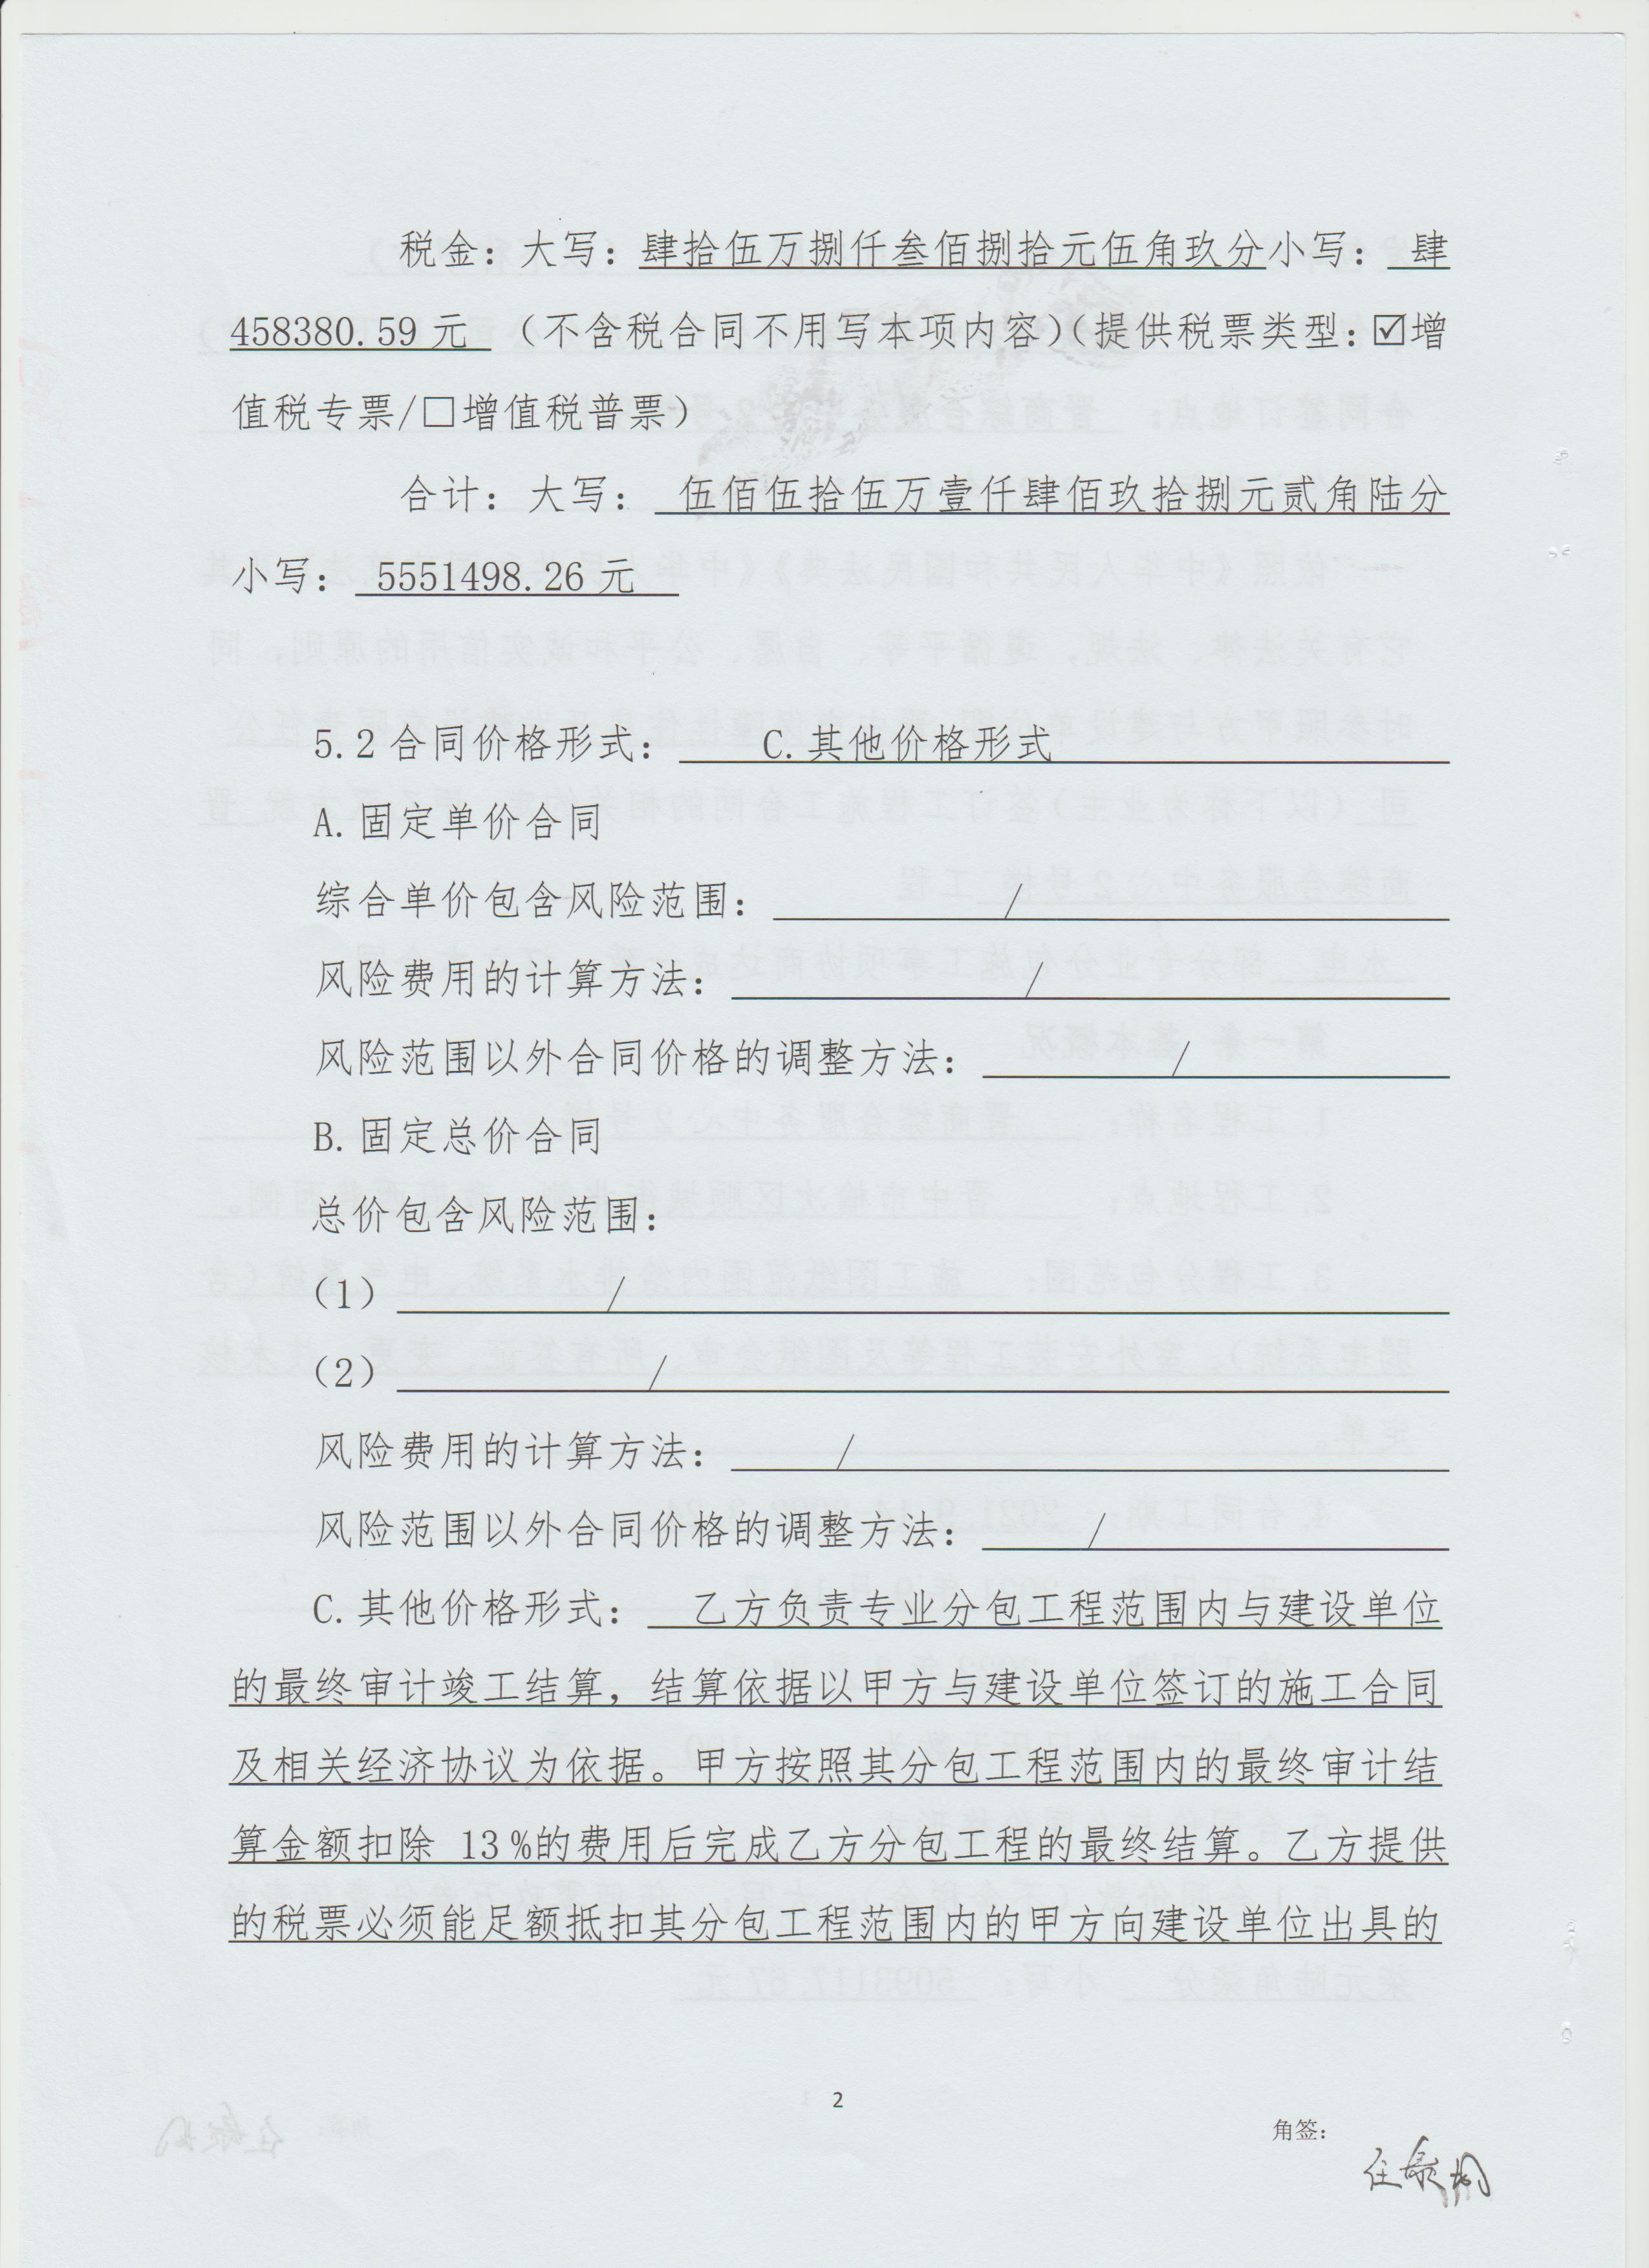 税金：大写：肆拾伍万捌仟叁佰捌拾元伍角玖分小写： 肆
458380.59 元 （不含税合同不用写本项内容）（提供税票类型：☑增
值税专票/□增值税普票）
合计：大写： 伍佰伍拾伍万壹仟肆佰玖拾捌元贰角陆分
小写： 5551498.26 元
5.2 合同价格形式： C.其他价格形式
A.固定单价合同
综合单价包含风险范围： /
风险费用的计算方法： /
风险范围以外合同价格的调整方法： /
B.固定总价合同
总价包含风险范围：
（1） /
（2） /
风险费用的计算方法： /
风险范围以外合同价格的调整方法： /
C.其他价格形式： 乙方负责专业分包工程范围内与建设单位
的最终审计竣工结算，结算依据以甲方与建设单位签订的施工合同
及相关经济协议为依据。甲方按照其分包工程范围内的最终审计结
算金额扣除 13%的费用后完成乙方分包工程的最终结算。乙方提供
的税票必须能足额抵扣其分包工程范围内的甲方向建设单位出具的
2
角签：